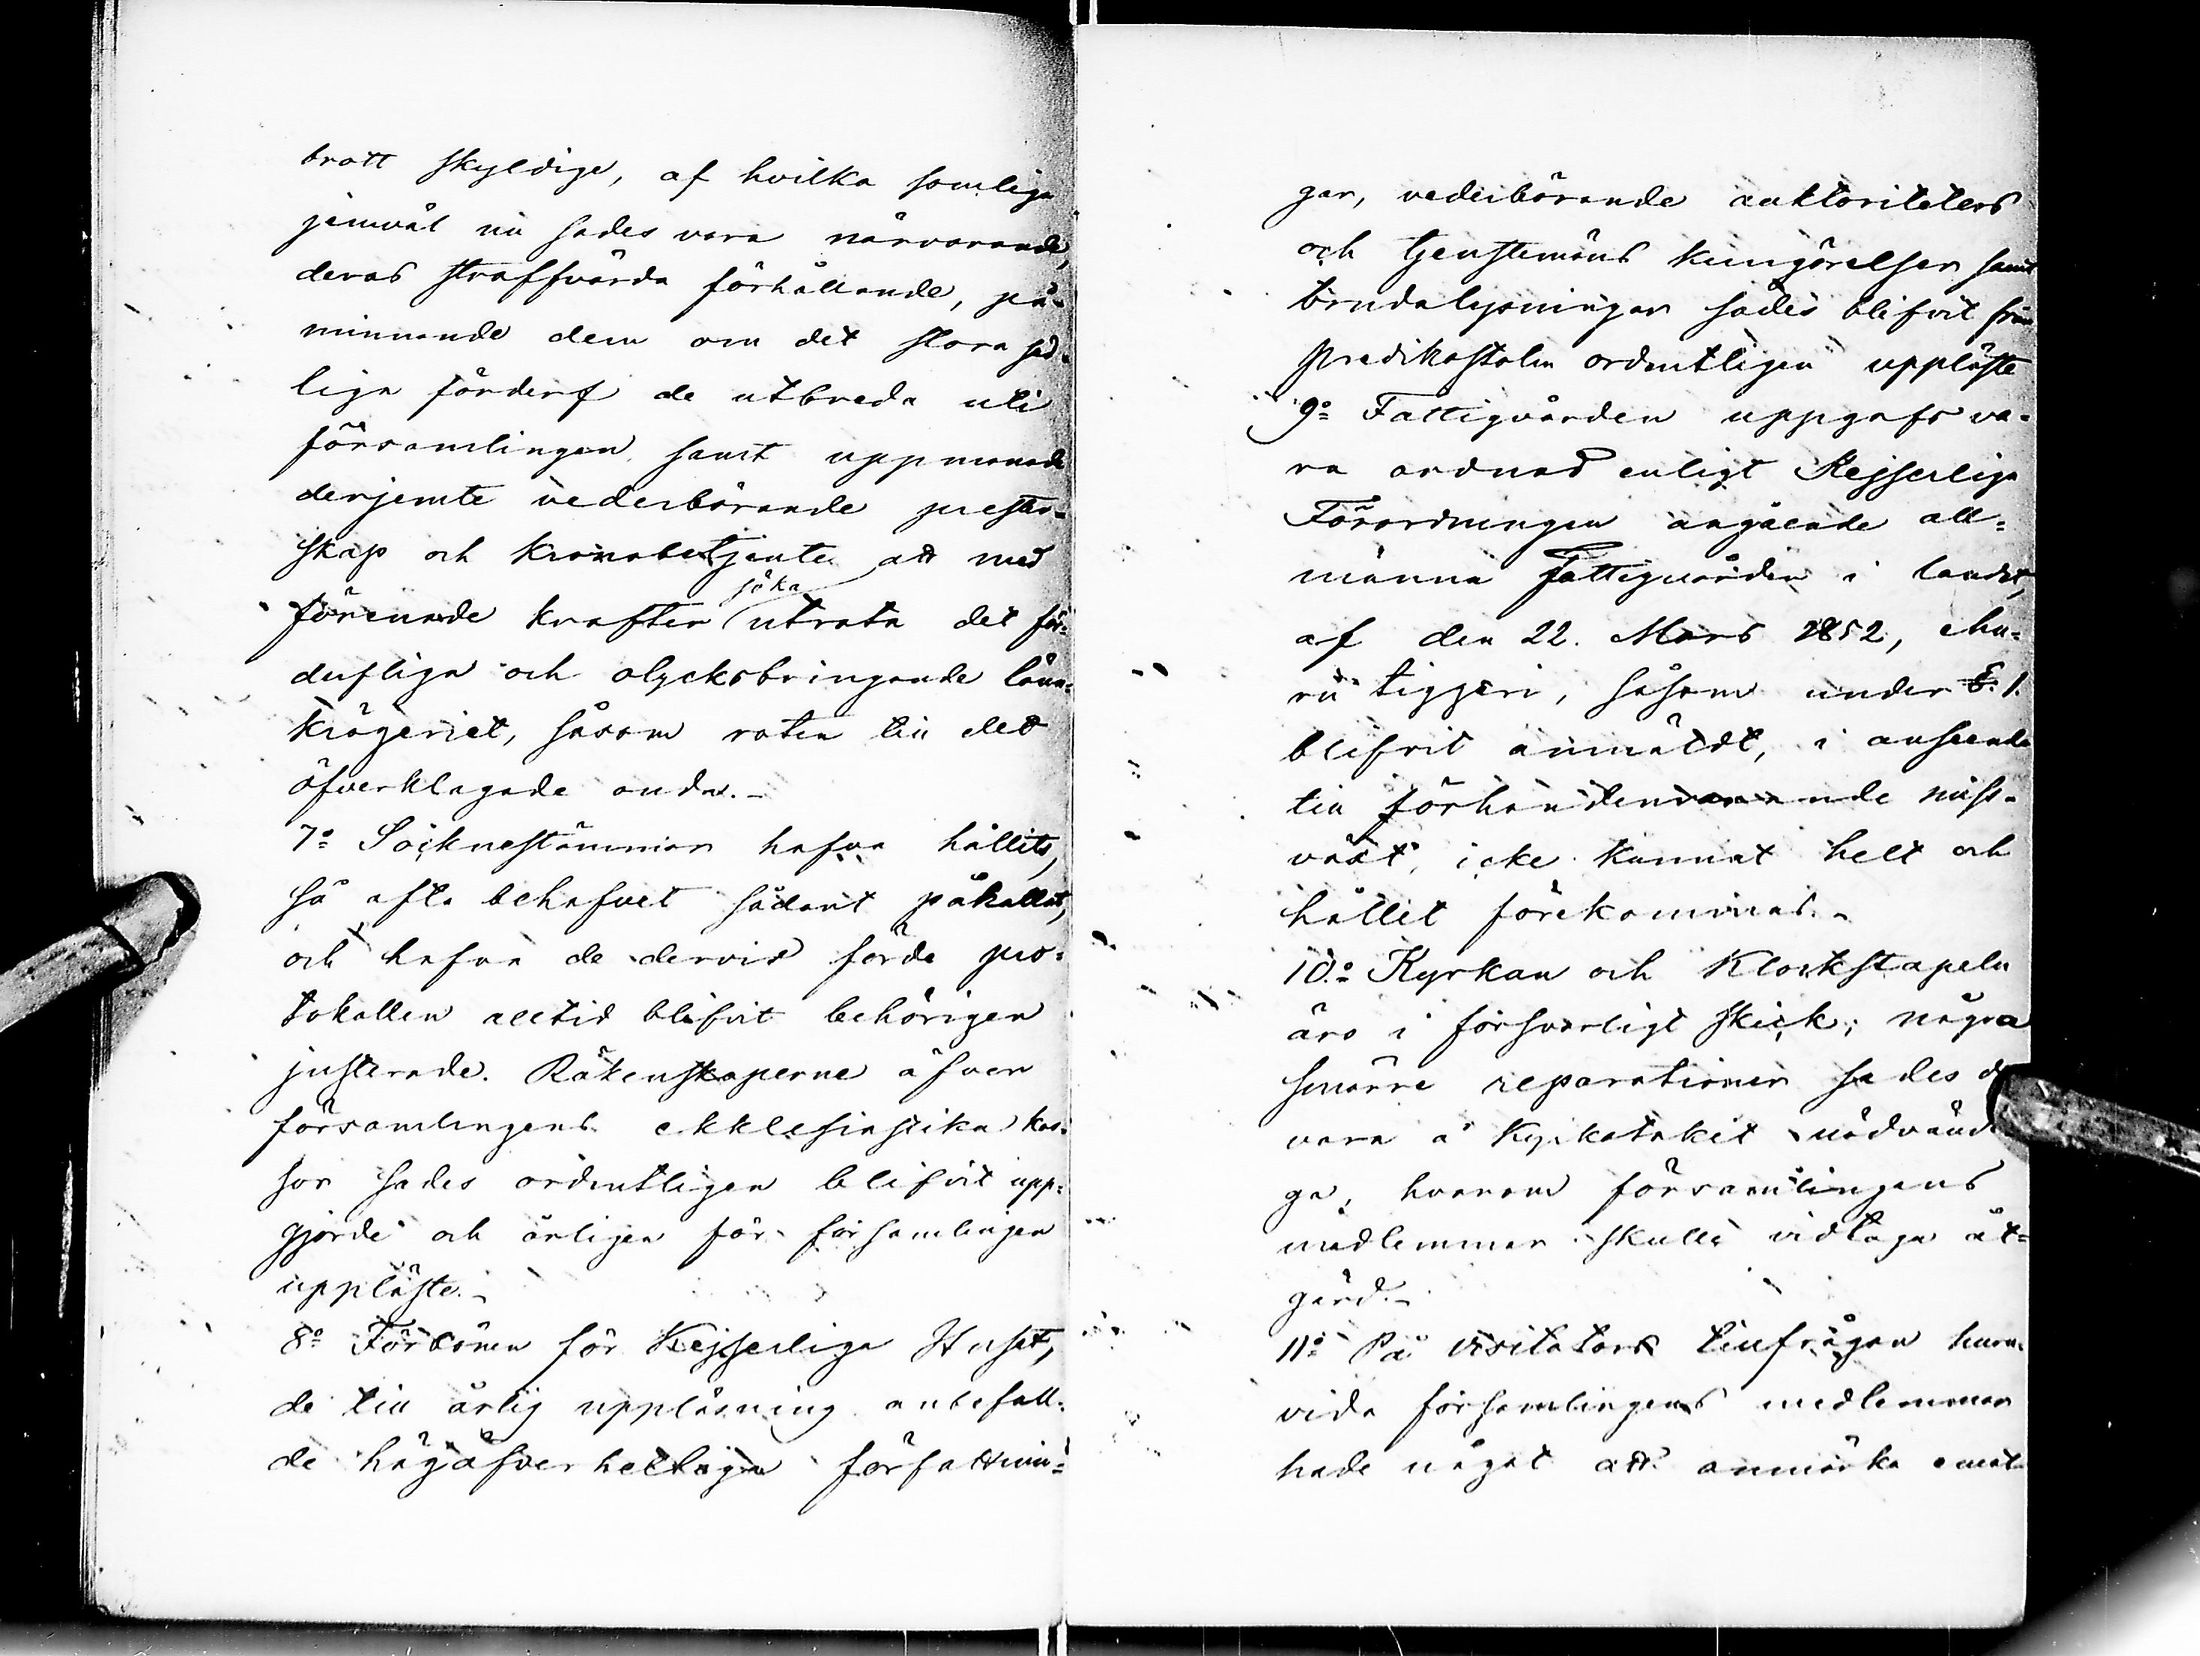 brott skyldige, af hvilka somliga
jemväl nu sades vara närvarande,
deras straffvärda förhållande, på-
minnande dem om det stora sed-
liga förderf de utbreda uti
församlingen samt uppmanade
derjemte vederbörande prester-
skap och kronobetjente att med
förenade krafter söka utrota det för-
derfliga och olycksbringande lönn-
krögeriet, såsom roten till det
öfverklagade onda.-
7:o Söcknestämmor hafva hållits,
så ofta behofvet sådant påkallat,
och hafva de dervid förda pro-
tokollen alltid blifvit behörigen
justerade. Räkenskaperne öfver
församlingens ekklesiastika kas-
sor sades ordentligen blifvit upp-
gjorde och årligen för församlingen
uppläste.-
8:o Förbönen för Kejserliga Huset,
de till årlig uppläsning anbefall-
de högöfverhetliga författnin-
gar, vederbörande auktoriteters
och tjenstemäns kungörelser samt
brudalysningar sades blifvit från
predikostolen ordentligen uppläste
9:o Fattigvården uppgafs va-
ra ordnad enligt Kejserliga
Förordningen angående all-
männa Fattigvården i landet,
af den 22. Mars 1852, ehu-
ru tiggeri, såsom under §. 1.
blifvit anmäldt, i anseende
till förhandenvarande miss-
växt, icke kunnat helt och
hållet förekommas.-
10:o Kyrkan och Klockstapeln
äro i försvarligt skick; några
smärre reparationer sades
vara å Kyrkotaket nödvändi-
ga, hvarom församlingens
medlemmar skulle vidtaga åt-
gärd.-
11:o På visitators tillfrågan huru-
vida församlingens medlemmar
hade något att anmärka emot